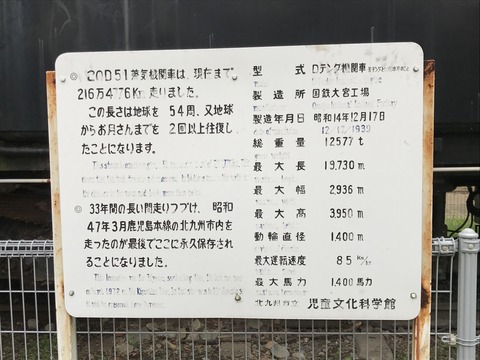 ◎ このD51蒸気機関車は、現在まで
216万4776Km 走りました。
この長さは地球を 54周、又地球
からお月さんまでを 2回以上往復し
たことになります。
◎ 33年間の長い間走りつづけ、昭和
47年3月鹿児島本線の北九州市内を
走ったのが最後でここに永久保存され
ることになりました。
型式 Dテンダ機関車
製造所 国鉄大宮工場
製造年月日 昭和14年12月17日
12 17 1939
総重量 125.77 t
最大長 19,730 m
最大幅 2,936 m
最大高 3,950 m
動輪直径 1,400 m
最大運転速度 85 Km/H
最大馬力 1,400 馬力
北九州市立 児童文化科学館